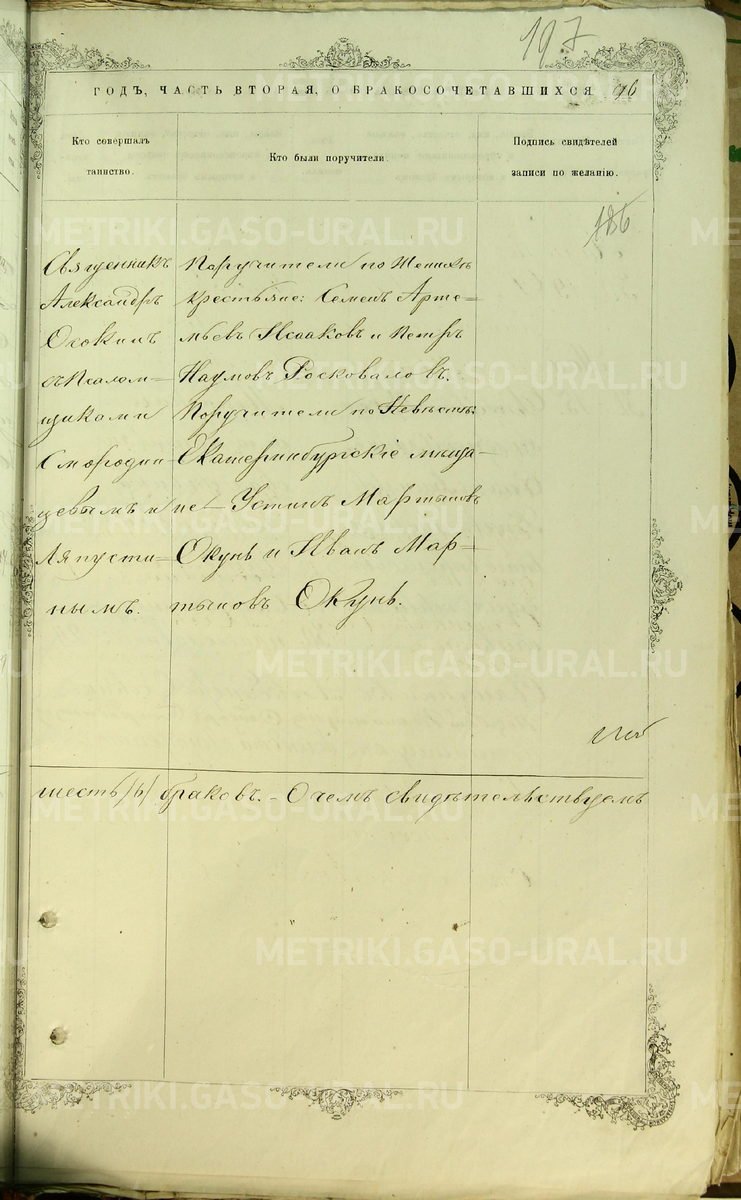 197
ГОДЪ, ЧАСТЬ ВТОРАЯ, О БРАКОСОЧЕТАВШИХСЯ
Кто совершалъ таинство.
Кто были поручители.
Подпись свидѣтелей записи по желанію.
186
Священникъ
Александръ
Оговинъ
съ Псалом=
щиками
Смородин=
цевымъ и
Ляпусти=
нымъ.
Поручители по Женихѣ
крестьяне: Семенъ Арте=
мьевъ Исааковъ и Петръ
Наумовъ Росковаловъ.
Поручители по Невѣстѣ:
Екатеринбургскіе мѣща=
не — Устинъ Мартыновъ
Окунь и Иванъ Мар=
тыновъ Окунь.
шесть /6/ браковъ. - О чемъ свидѣтельствуемъ
METRIKI.GASO-URAL.RU